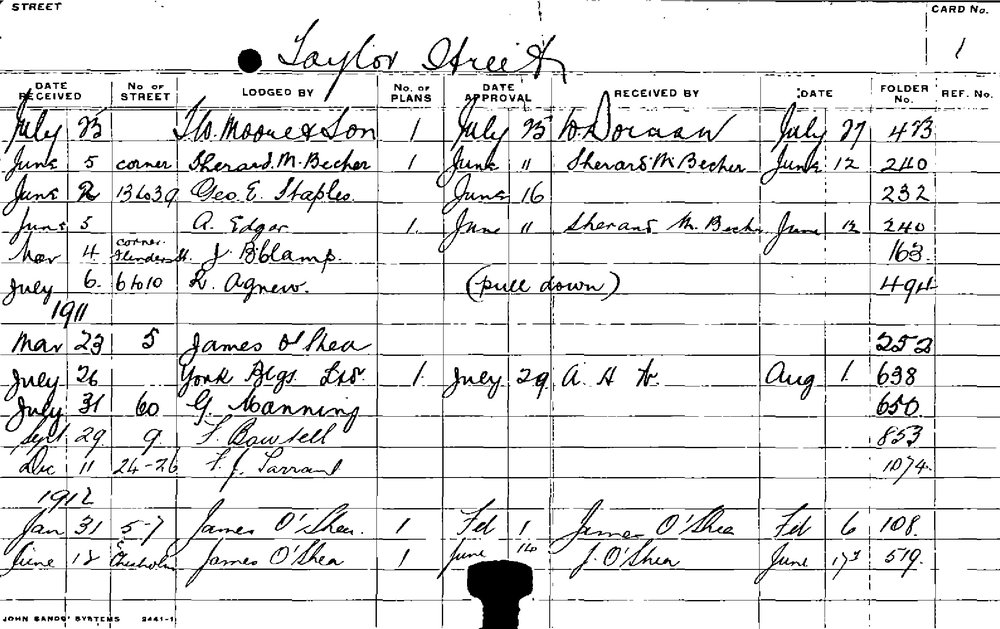 STREET CARD No.
Taylor Street 1
DATE RECEIVED No. OF STREET LODGED BY No. OF PLANS DATE APPROVAL RECEIVED BY DATE FOLDER No. REF. No.
July 23 Moore & Son 1 July 25 July 27 423
June 5 corner Sherard. M. Becher 1 June 11 Sherard M Becher June 12 240
June 2 13 to 39 Geo. E. Staples. June 16 232
June 5 A. Edgar 1. June 11 Sherard M. Bech June 12 240
corner.
Mar 4 Flinders St. J 163.
July 6. 6 to 10 R. Agnew. (pull down) 494
1911
Mar 23 5 James O'Shea 252
July 26 York Blgs. Ltd. 1. July 29 A. H Aug 1. 638
July 31 60 G. Manning 650.
Sept. 29 9. F. Bowtell 853
Dec 11 24-26 F. J. Tarrant 1074.
1912
Jan 31 5-7 James O'Shea. 1 Feb 1 James O'Shea Feb 6 108.
June 12 & Chisholm James O'Shea 1 June 14 J. O'Shea June 17 519.
JOHN SANDS' SYSTEMS 2441-1